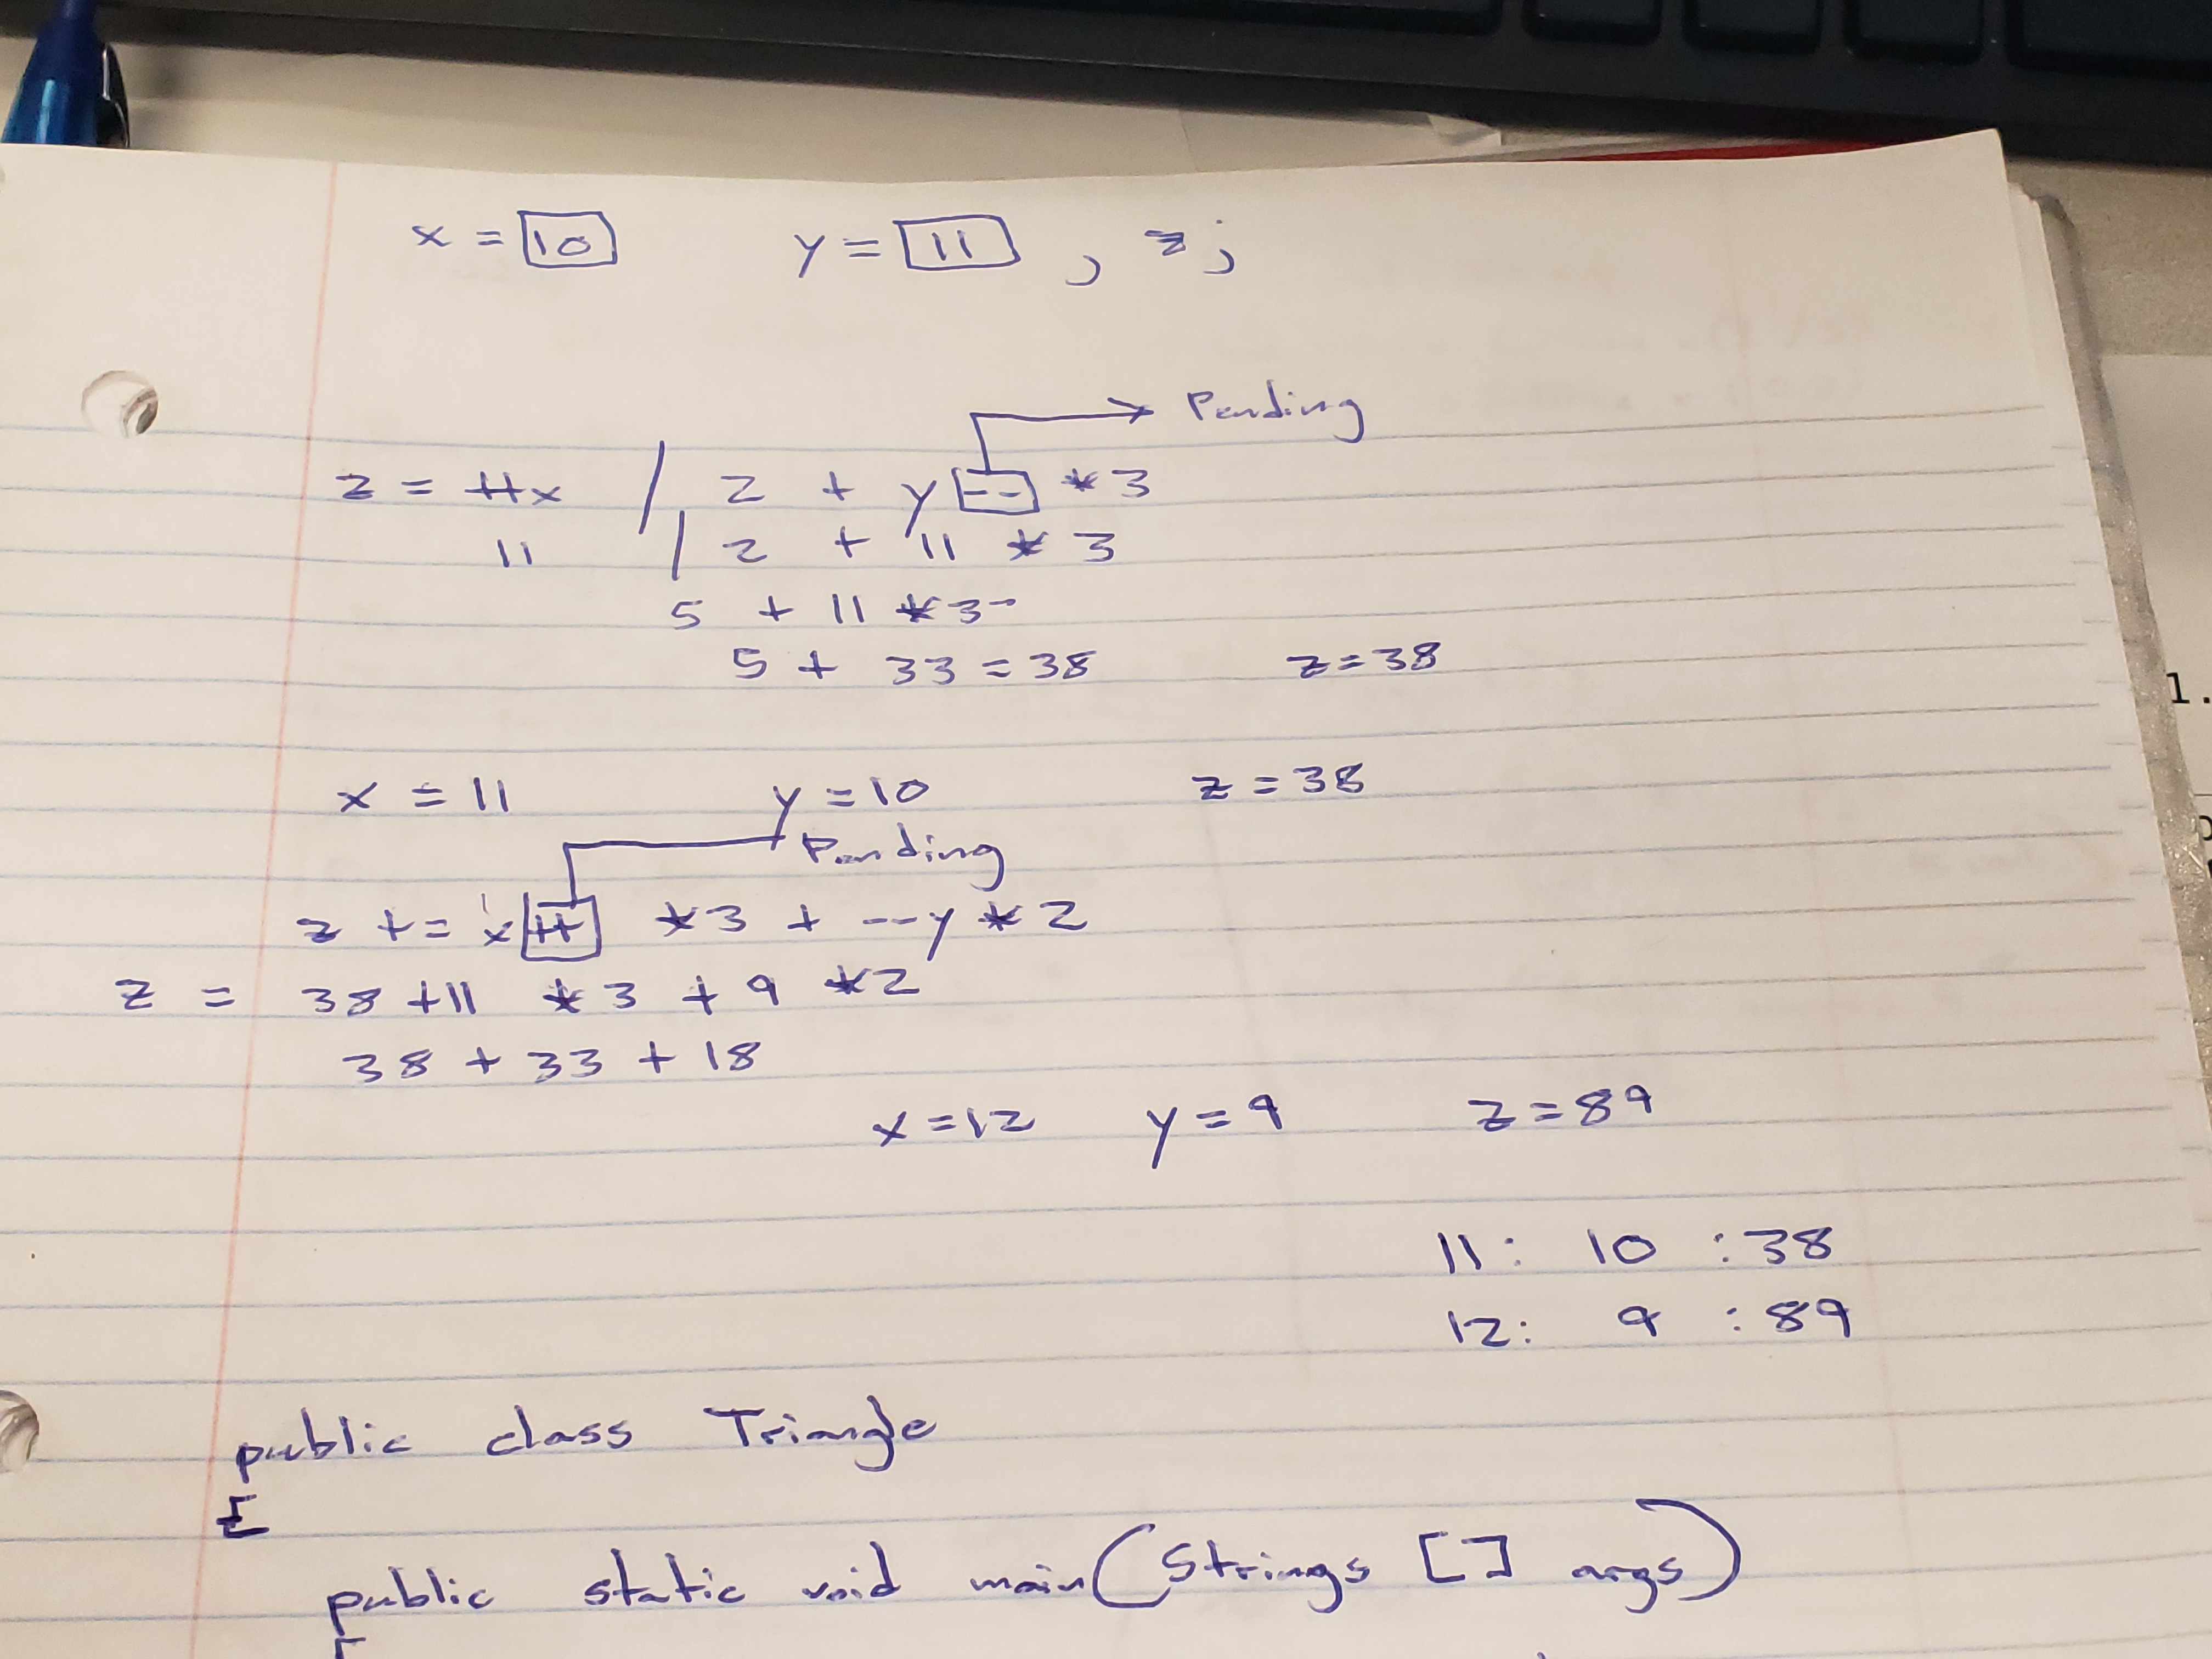 x = 10 y = 11 , z ;
Pending
z = ++x / 2 + y -- * 3
11 / 2 + 11 * 3
5 + 11 * 3
5 + 33 = 38 z = 38
x = 11 y = 10 z = 38
Pending
z += x ++ * 3 + --y * 2
z = 38 + 11 * 3 + 9 * 2
38 + 33 + 18
x = 12 y = 9 z = 89
11 : 10 : 38
12 : 9 : 89
public class Triangle
{
public static void main(Strings [] args)
1.